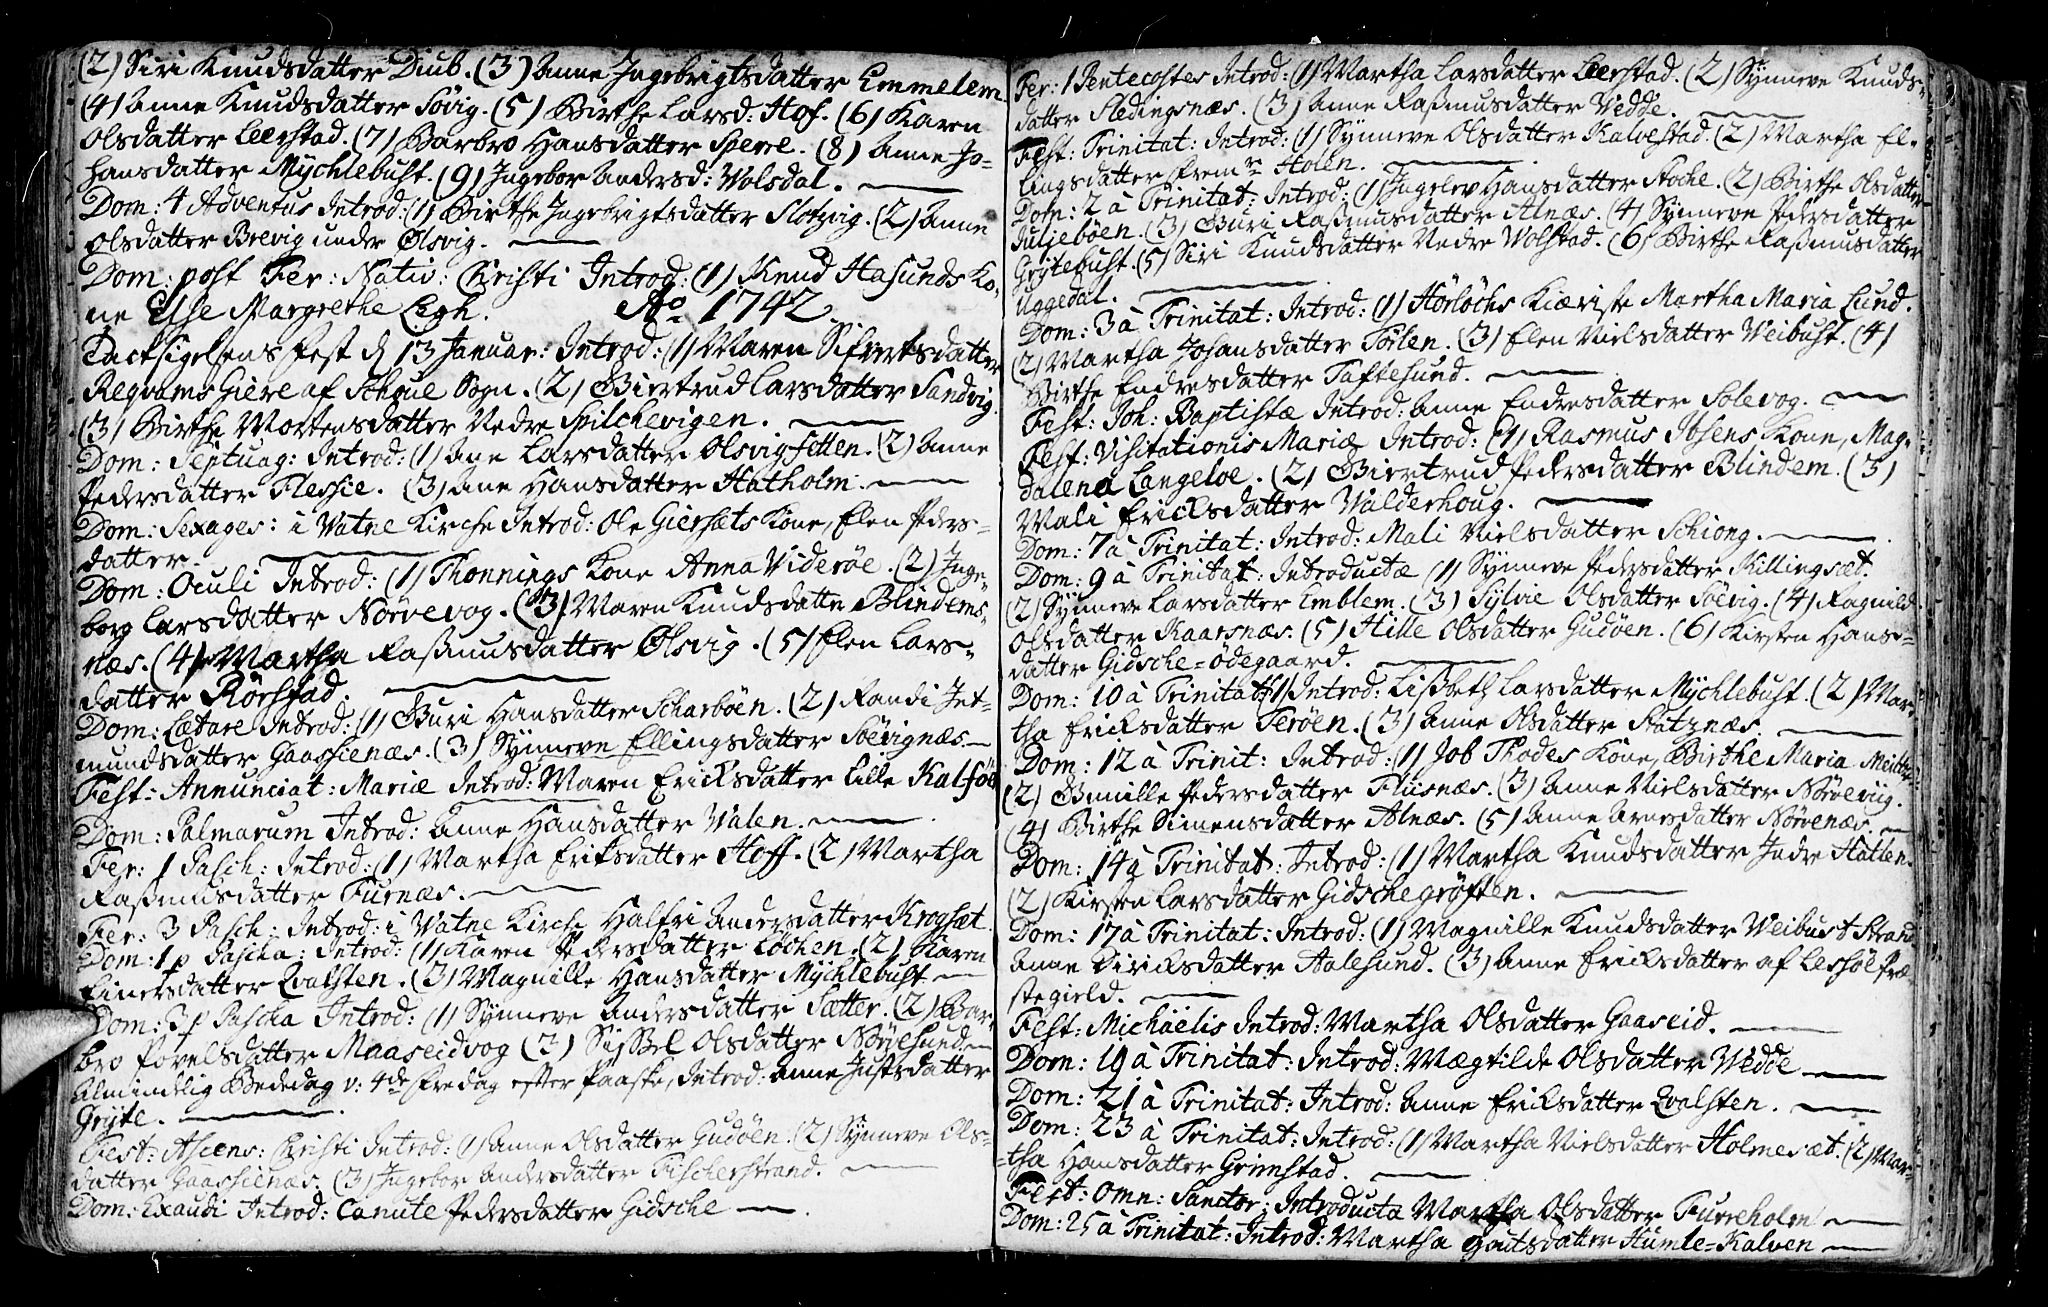 (2) Siri Knudsdatter Diub. (3) Anne Ingebrigtsdatter Emmelem
(4) Anne Knudsdatter Søvig. (5) Birthe Larsd: Hof. (6) Karen
Olsdatter Leerstad. (7) Barbro Hansdatter Sperre. (8) Anne Jo-
hansdatter Mychlebust. (9) Ingebor Andersd: Volsdal.
Dom: 4 Adventus Introd: (1) Birthe Ingebrigtsdatter Slotzvig. (2) Anne
Olsdatter Brevig under Ølsvig.
Dom: post Fer: Nativ: Christi Introd: (1) Knud Hasunds Ko-
ne Else Margrethe Legh. Ao 1742.
Tacksigelsens Fest d 13 Januar: Introd: (1) Maren Sifvertsdatter
Reqvams Giere af Schoue Sogn. (2) Giertrud Larsdatter Sandvig.
(3) Birthe Mortensdatter Nedre Spilchevigen.
Dom: Septuag: Introd: (1) Ane Larsdatter Olsvigsetten. (2) Anne
Pedersdatter Flessie. (3) Ane Hansdatter Hatholm.
Dom: Sexages: i Vatne Kirche Introd: Ole Giersæts Kone, Elen Peders-
datter.
Dom: Oculi Introd: (1) Thonnings Kone Anna Viderøe. (2) Inge-
borg Larsdatter Nørvevog. (3) Maren Knudsdatter Blindems-
næs. (4) Martha Rasmusdatter Ølsvig. (5) Elen Lars-
datter Rørstad.
Dom: Lætare Introd: (1) Guri Hansdatter Scharbøen. (2) Randi Jet-
mundsdatter Gaassienæs. (3) Synneve Ellingsdatter Søevignæs
Fest: Annunciat: Mariæ Introd: Maren Ericksdatter Lille Kalføe
Dom: Palmarum Introd: Anne Hansdatter Valen.
Fer: 1 Pasch: Introd: (1) Martha Eriksdatter Hoff. (2) Martha
Rasmusdatter Furnæs.
Fer: 3 Pasch: Introd: i Vatne Kirche Halfri Andersdatter Krogsæt.
Dom: 1 p Pascha: Introd: (1) Karen Pedersdatter Lochen. (2) Karen
Einersdatter Qvalsten. (3) Magnille Hansdatter Mychlebust
Dom: 3 p Pascha Introd: (1) Synneve Andersdatter Sætter. (2) Bar-
bro Povelsdatter Maaseidvog (3) Sissel Olsdatter Nørvesund
Almindelig Bededag v: 4de Fredag efter Paaske, Introd: Anne Justsdatter
Gryte.
Fest: Ascens: Christi Introd: (1) Anne Olsdatter Gudøen. (2) Synneve Ols-
datter Gaassienæs. (3) Ingebor Andersdatter Fischerstrand.
Dom: Exaudi Introd: Canute Pedersdatter Gidsche
Fer: 1 Pentecostes Introd: (1) Martha Larsdatter Leerstad. (2) Synneve Knuds-
datter Fledingsnæs. (3) Anne Rasmusdatter Vedde.
Fest: Trinitat: Introd: (1) Synneve Olsdatter Kalvestad. (2) Martha El-
lingsdatter Frem Holen.
Dom: 2 à Trinitat: Introd: (1) Ingelev Hansdatter Stoche. (2) Birthe Olsdatter
Juljebøen. (3) Guri Rasmusdatter Alnæs. (4) Synneve Pedersdatter
Grytebust. (5) Siri Knudsdatter Nedre Volstad. (6) Birthe Rasmusdatter
Uggedal.
Dom: 3 à Trinitat: Introd: (1) Hørløchs Kiæriste Martha Maria Lund.
(2) Martha Johansdatter Giølen. (3) Elen Nielsdatter Veibust. (4)
Birthe Endresdatter Taftesund.
Fest: Joh: Baptistæ Introd: Anne Endresdatter Solevog.
Fest: Visitationis Mariæ Introd: (1) Rasmus Ibsens Kone, Mag-
dalena Langeloe. (2) Giertrud Pedersdatter Blindem. (3)
Mali Ericksdatter Valderhoug.
Dom: 7 à Trinitat: Introd: Mali Nielsdatter Schiong.
Dom: 9 à Trinitat: Introductæ (1) Synneve Pedersdatter Killingsæt.
(2) Synneve Larsdatter Emblem. (3) Sylvie Olsdatter Søevig. (4) Ragnild
Olsdatter Kaarsnæs. (5) Hille Olsdatter Gudøen. (6) Kirsten Hans-
datter Gidsche-ødegaard.
Dom: 10 à Trinitat: (1) Introd: Lisbeth Larsdatter Mychlebust. (2) Mar-
tha Ericksdatter Terøen. (3) Anne Olsdatter Slotznæs.
Dom: 12 à Trinit: Introd: (1) Job Thodes Kone, Birthe Maria
(2) Gunille Pedersdatter Flusnæs. (3) Anne Nielsdatter Nørveviig.
(4) Birthe Simensdatter Alnæs. (5) Anne Arnesdatter Nørvenæs.
Dom: 14 à Trinitat: Introd: (1) Martha Knudsdatter Indre Hatlen.
(2) Kirsten Larsdatter Gidschegrøften.
Dom: 17 à Trinitat: Introd: (1) Magnille Knudsdatter Veibust Strand
Anne Diricksdatter Aalesund. (3) Anne Ericksdatter af Lessøe Præ-
stegield.
Fest: Michäelis Introd: Martha Olsdatter Gaaseid.
Dom: 19 à Trinitat: Introd: Mægtilde Olsdatter Vedde
Dom: 21 à Trinitat: Introd: Anne Ericksdatter Qvalsten.
Dom: 23 à Trinitat: Introd: (1) Martha Nielsdatter Holmesæt. (2) Mar-
tha Hansdatter Grimstad.
Fest: Omn: Sanctor: Introducta Martha Olsdatter Furreholm
Dom: 25 à Trinitat: Introd: Martha Gautsdatter Humle-Kalven